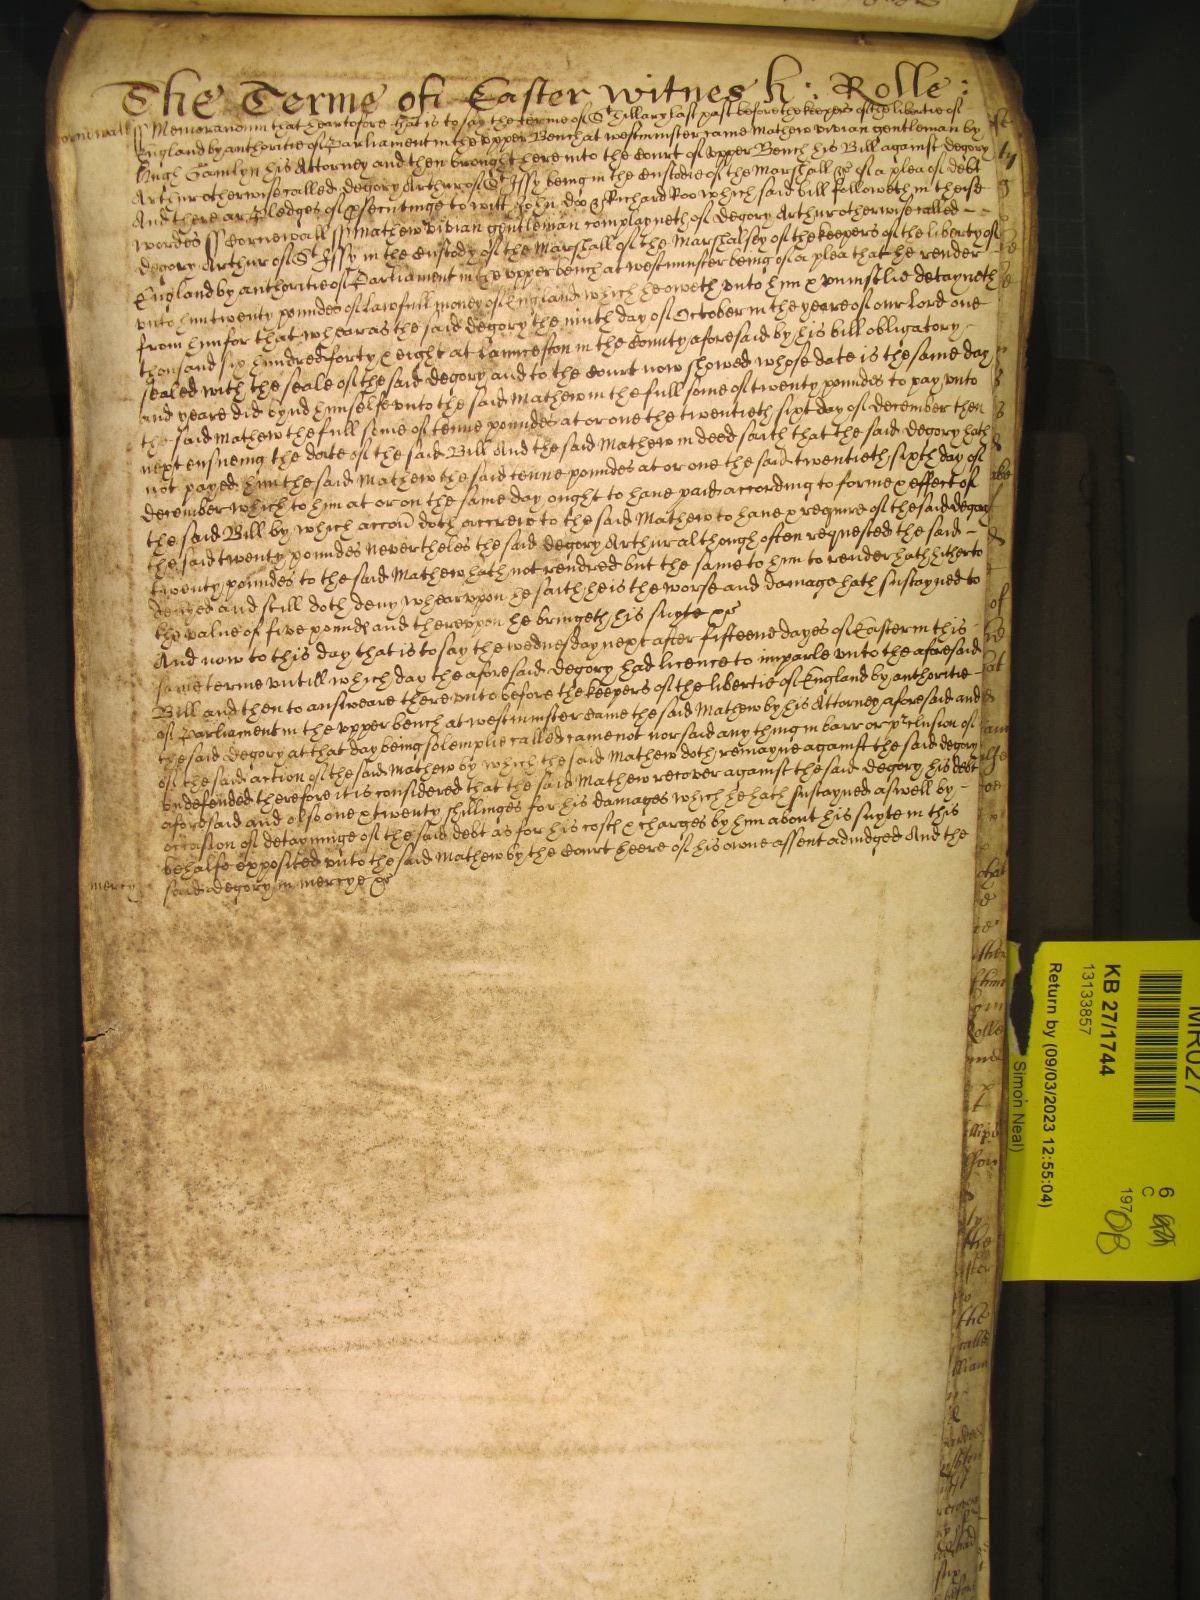 The Terme of Easter witnes h: Rolle:
Cornewall ss Memorandum that heartofore that is to say the terme of St Hillary last past before the keepers of the libertie of
England by authoritie of Parliament in the Upper Bench at westminster came Mathew vivian gentleman by
Hugh Gamlyn his Attorney and then brought here into the Court of Upper Bench his Bill against Degory
Arthur otherwise called Degory Arthur of St Issy being in the Custodie of the Marshall &c of a plea of debt
And there are Pledges of prsecutinge to witt John Doo & Richard Roo which said bill followeth in these
wordes ss Cornewall ss Mathew vivian gentleman complayneth of Degory Arthur otherwise called
Degory Arthur of St Issy in the Custody of the Marshall of the Marshalsey of the keepers of the liberty of
England by authoritie of Parliament in the upper bench at westminster being of a plea that he render
unto him twenty poundes of Lawfull money of England which he oweth unto him & uniustlie detayneth
from him for that whearas the said Degory the ninth day of October in the yeare of our Lord one
thousand six hundred forty & eight at Launceston in the County aforesaid by his bill obligatory
sealed with the seale of the said Degory and to the Court now showed whose date is the same day
and yeare did bynd himselfe unto the said Mathew in the full some of twenty poundes to pay unto
the said Mathew the full some of tenne poundes at or one the twentieth sixt day of December then
next ensueing the date of the said Bill And the said Mathew in deed saith that the said Degory hath
not payed him the said Mathew the said tenne poundes at or one the said twentieth sixth day of
December which to him at or on the same day ought to have paid according to forme & effect of
the said Bill by which accon doth accrew to the said Mathew to have & require of the said Degory
the said twenty poundes Nevertheles the said Degory Arthur although often requested the said
twenty poundes to the said Mathew hath not rendred but the same to him to render hath hitherto
denyed and still doth deny whearupon he saith he is the worse and damage hath sustayned to
the value of five pounds and thereupon he bringeth his suyte &c
And now to this day that is to say the wednesday next after fifteene dayes of Easter in this
same terme untill which day the aforesaid Degory had licence to imparle unto the aforesaid
Bill and then to answeare thereunto before the keepers of the libertie of England by authoritie
of Parliament in the upper bench at westminster came the said Mathew by his Attorney aforesaid and
the said Degory at that day being solemplie called came not nor said any thing in barr or prclusion of
of the said action of the said Mathew by which the said Mathew doth remayne against the said Degory
undefended therefore it is considered that the said Mathew recover against the said Degory his debt
aforesaid and also one & twenty shillinges for his damages which he hath sustayned aswell by
occasion of detayninge of the said debt as for his costs & charges by him about his suyte in this
behalfe exposited unto the said Mathew by the Court heere of his owne assent adiudged And the
mercy said Degory in mercye &c
MR027
KB 27/1744
13133857
Return by (09/03/2023 12:55:04)
Simon Neal)
6
C
197